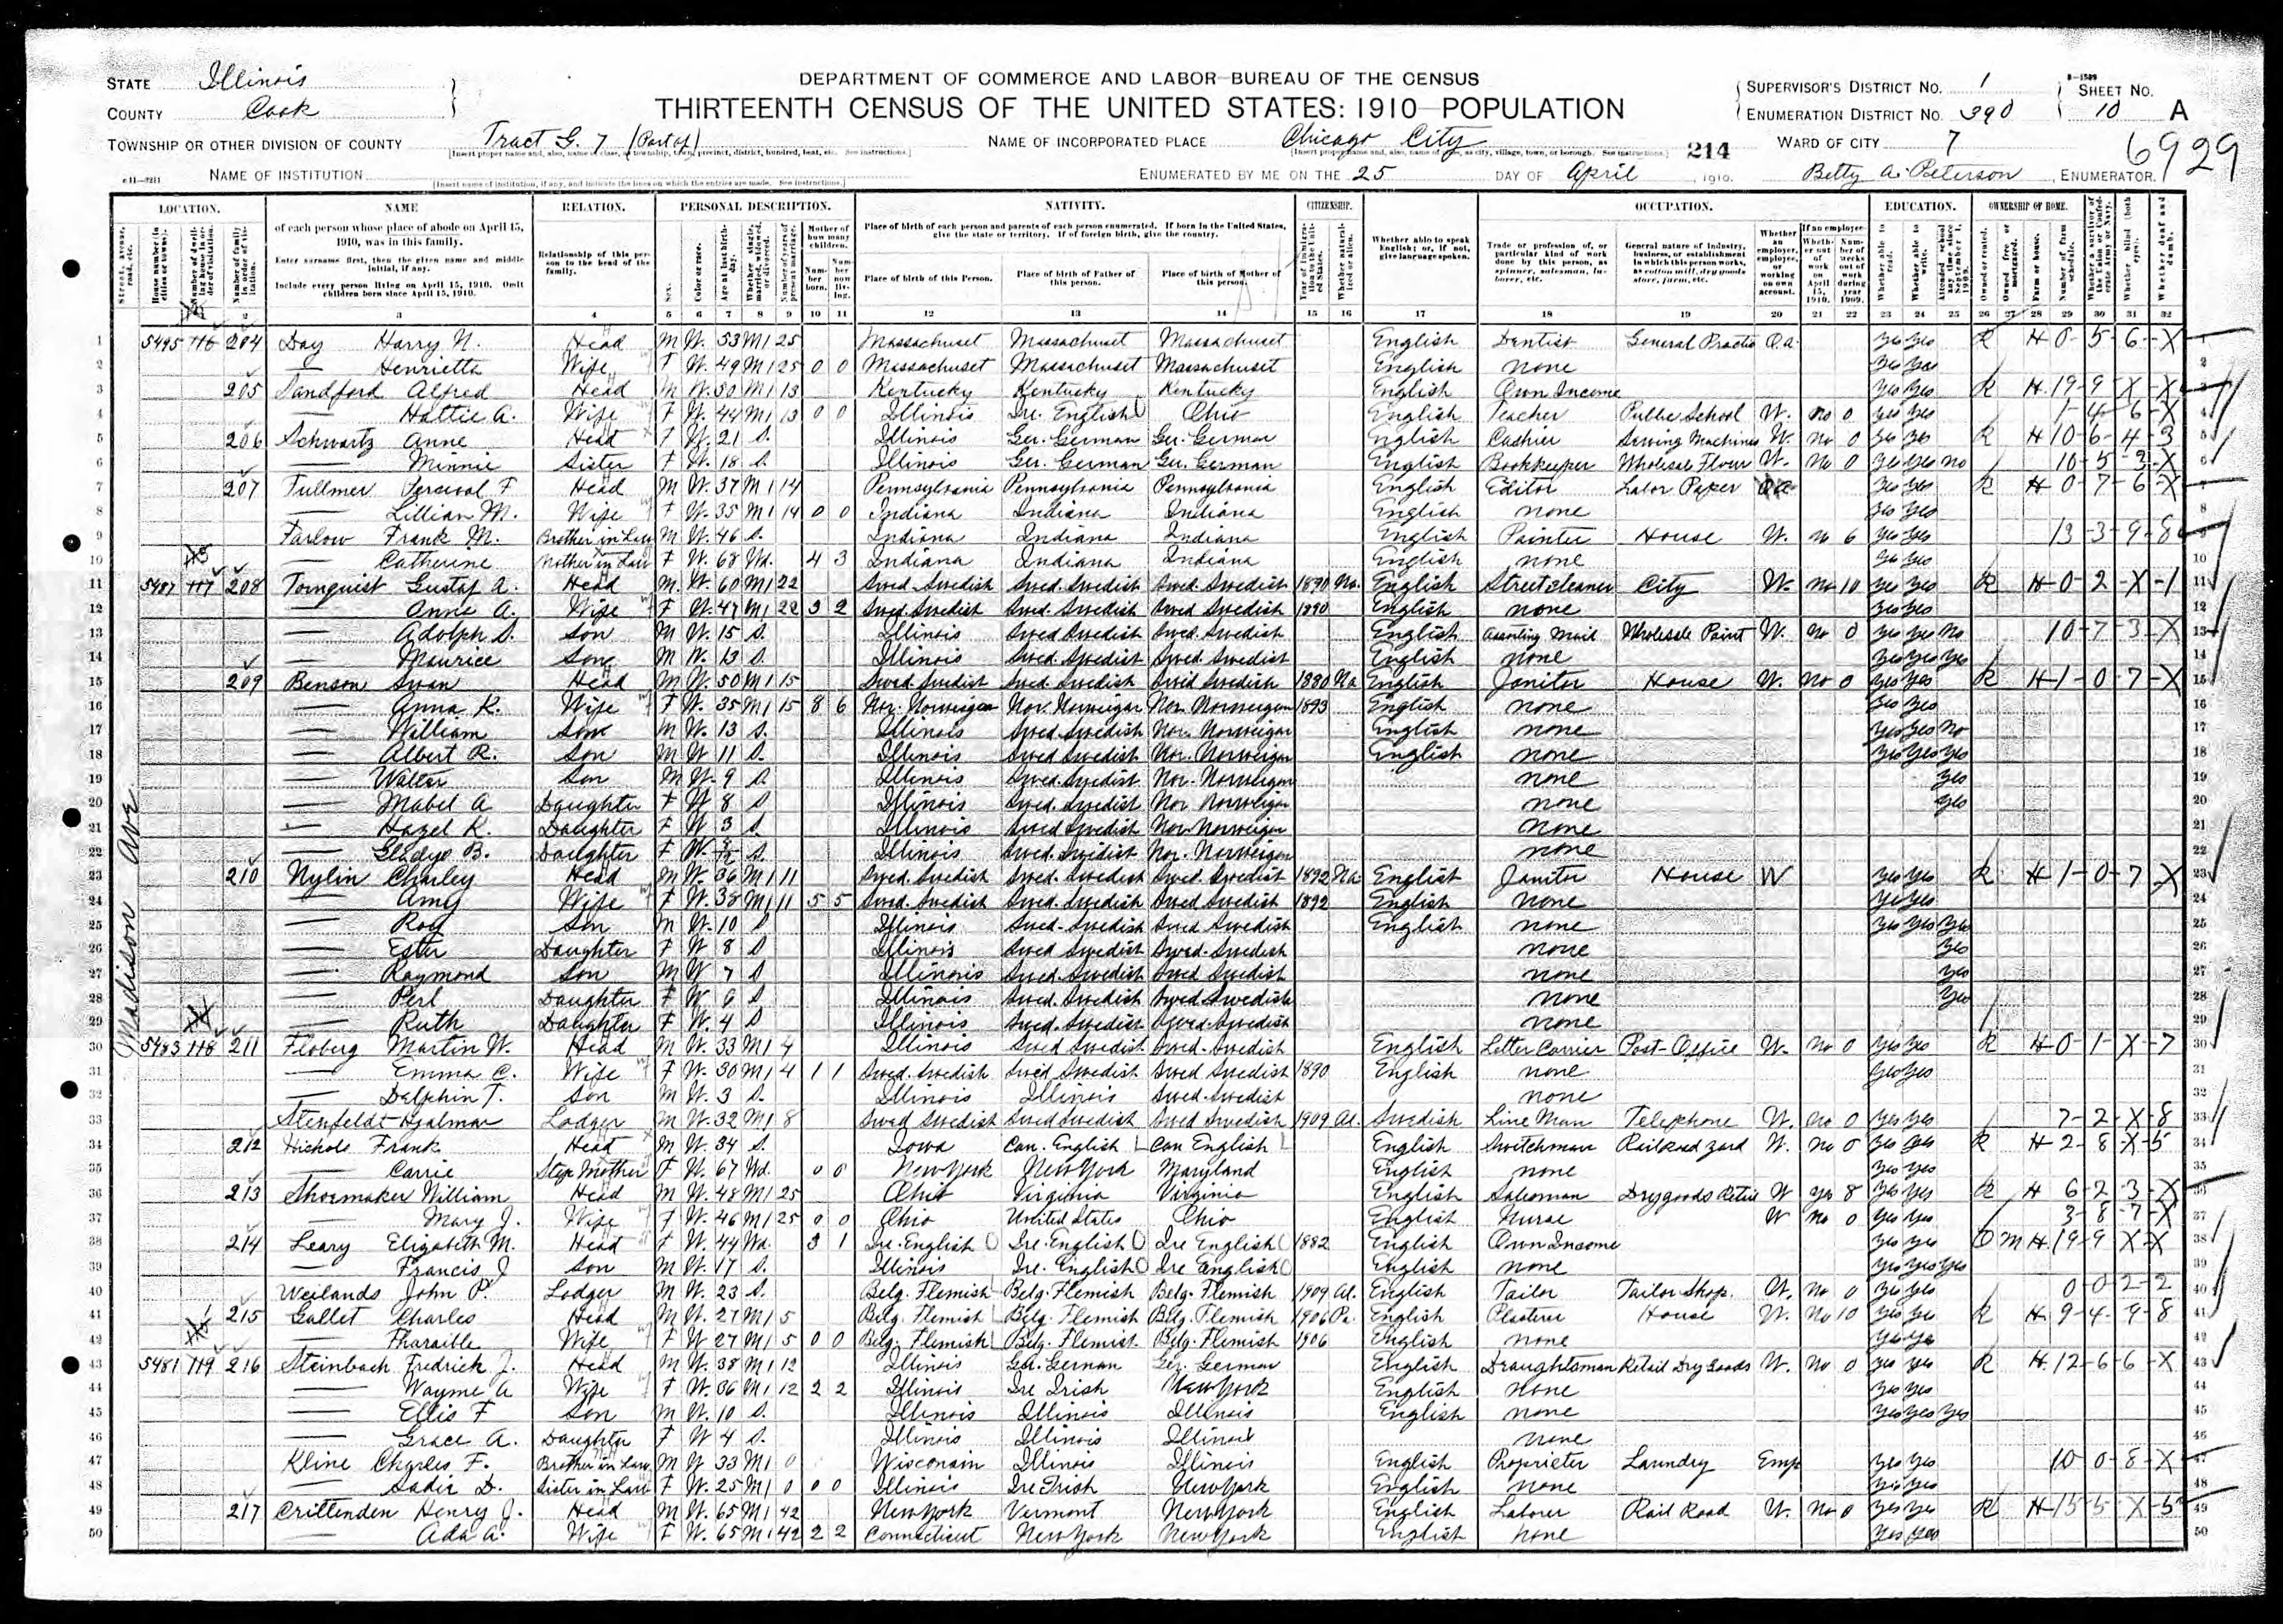 DEPARTMENT OF COMMERCE AND LABOR—BUREAU OF THE CENSUS
THIRTEENTH CENSUS OF THE UNITED STATES: 1910—POPULATION
STATE Illinois
COUNTY Cook
TOWNSHIP OR OTHER DIVISION OF COUNTY Tract G. 7 (Part of)
NAME OF INSTITUTION
NAME OF INCORPORATED PLACE Chicago City
ENUMERATED BY ME ON THE 25 DAY OF April, 1910.
214
SUPERVISOR'S DISTRICT No. 1
ENUMERATION DISTRICT No. 390
WARD OF CITY 7
Betty A. Peterson, ENUMERATOR.
SHEET No. 10 A
6929
LOCATION. NAME RELATION. PERSONAL DESCRIPTION. NATIVITY. CITIZENSHIP. OCCUPATION. EDUCATION. OWNERSHIP OF HOME.
of each person whose place of abode on April 15, 1910, was in this family.
Enter surname first, then the given name and middle initial, if any.
Include every person living on April 15, 1910. Omit children born since April 15, 1910.
Relationship of this person to the head of the family.
Place of birth of each person and parents of each person enumerated. If born in the United States, give the state or territory. If of foreign birth, give the country.
Place of birth of this Person. Place of birth of Father of this person. Place of birth of Mother of this person.
Whether able to speak English; or, if not, give language spoken.
Madison Ave
1 5495 116 204 Day Harry N. Head M W. 53 M1 25 Massachuset Massachuset Massachuset English Dentist General Practis O.a. Yes Yes R H 0-5-6-X
2 — Henrietta Wife F W. 49 M1 25 0 0 Massachuset Massachuset Massachuset English none Yes Yes
3 205 Sandford Alfred Head M W. 50 M1 13 Kentucky Kentucky Kentucky English Own Income Yes Yes R H 19-9-X-X
4 — Hattie A. Wife F W. 44 M1 13 0 0 Illinois Ire. English Ohio English Teacher Public School W. no 0 yes yes 1-4-6-X
5 206 Schwartz Anne Head F W. 21 S. Illinois Ger. German Ger. German English Cashier Sewing Machines W. no 0 yes yes R H 10-6-4-3
6 — Minnie Sister F W. 18 S. Illinois Ger. German Ger. German English Bookkeeper Wholesale Flour W. No 0 yes yes no 10-5-3-X
7 207 Fullmer Percival F Head M W. 37 M1 14 Pennsylvania Pennsylvania Pennsylvania English Editor Labor Paper Yes Yes R H 0-7-6-X
8 — Lillian M. Wife F W. 35 M1 14 0 0 Indiana Indiana Indiana English none Yes Yes
9 Farlow Frank M. Brother in Law M W. 46 S. Indiana Indiana Indiana English Painter House W. no 6 yes yes 13-3-9-8
10 — Catherine Mother in Law F W. 68 Wd. 4 3 Indiana Indiana Indiana English none Yes Yes
11 5487 117 208 Tornquist Gustaf A. Head M. W. 60 M1 22 Swed. Swedish Swed. Swedish Swed. Swedish 1890 Na. English Street cleaner City W. no 10 yes yes R H 0-2-X-1
12 — Anna A. Wife F W. 47 M1 22 3 2 Swed. Swedish Swed. Swedish Swed Swedish 1890 English none Yes Yes
13 — Adolph S. Son M W. 15 S. Illinois Swed Swedish Swed. Swedish English Assorting Mail Wholesale Paint W. no 0 yes yes No 10-7-3-X
14 — Maurice Son M W. 13 S. Illinois Swed. Swedish Swed. Swedish English none Yes Yes Yes
15 209 Benson Swan Head M W. 50 M1 15 Swed. Swedish Swed. Swedish Swed Swedish 1880 Na English Janitor House W. no 0 yes yes R H 1-0-7-X
16 — Anna K. Wife F W. 35 M1 15 8 6 Nor. Norweigan Nor. Norweigan Nor. Norweigan 1893 English none Yes Yes
17 — William Son M W. 13 S. Illinois Swed Swedish Nor. Norweigan English none Yes Yes No
18 — Albert R. Son M W 11 S. Illinois Swed. Swedish Nor. Norweigan English none Yes Yes Yes
19 — Walter Son M W. 9 S. Illinois Swed. Swedish Nor. Norweigan none Yes
20 — Mabel A Daughter F W 8 S Illinois Swed. Swedish Nor Norweigan none Yes
21 — Hazel K. Daughter F W 3 S. Illinois Swed Swedish Nor Norweigan none
22 — Gladys B. Daughter F W. S. Illinois Swed. Swedish Nor. Norweigan none
23 210 Nylin Charley Head M W. 36 M1 11 Swed. Swedish Swed. Swedish Swed. Swedish 1892 Na English Janitor House W Yes Yes R H 1-0-7-X
24 — Amy Wife F W. 38 M1 11 5 5 Swed. Swedish Swed. Swedish Swed Swedish 1892 English none Yes Yes
25 — Roy Son M W. 10 S Illinois Swed. Swedish Swed Swedish English none Yes Yes Yes
26 — Ester Daughter F W 8 S Illinois Swed Swedish Swed. Swedish none Yes
27 — Raymond Son M W 7 S Illinois Swed. Swedish Swed Swedish none Yes
28 — Perl Daughter F W 6 S Illinois Swed. Swedish Swed. Swedish none Yes
29 — Ruth Daughter F W. 4 S Illinois Swed. Swedish Swed. Swedish none
30 5483 118 211 Floberg Martin W. Head M W. 33 M1 4 Illinois Swed Swedish Swed. Swedish English Letter Carrier Post-Office W. No 0 yes yes R H 0-1-X-7
31 — Emma C. Wife F W. 30 M1 4 1 1 Swed. Swedish Swed Swedish Swed Swedish 1890 English none Yes Yes
32 — Delphin T. Son M W. 3 S. Illinois Illinois Swed. Swedish none
33 Stenfeldt Hjalmar Lodger M W. 32 M1 8 Swed Swedish Swed Swedish Swed Swedish 1909 Al. Swedish Line Man Telephone W. No 0 yes yes 7-2-X-8
34 212 Nichols Frank Head M W. 34 S. Iowa Can. English Can English English Switchman Railroad yard W. no 0 yes yes R H 2-8-X-5
35 — Carrie Step Mother F W. 67 Wd. 0 0 New York New York Maryland English none Yes Yes
36 213 Shoemaker William Head M W. 48 M1 25 Ohio Virginia Virginia English Salesman Drygoods Retail W yes 8 yes yes R H 6-2-3-X
37 — Mary J. Wife F W. 46 M1 25 0 0 Ohio United States Ohio English Nurse W no 0 yes yes 3-8-7-X
38 214 Leary Elizabeth M. Head F W. 44 Wd. 3 1 Ire. English Ire. English Ire English 1882 English Own Income yes yes O M H 19-9-X-X
39 — Francis J Son M W. 17 S. Illinois Ire. English Ire English English none Yes Yes Yes
40 Weilands John P. Lodger M W. 23 S. Belg. Flemish Belg. Flemish Belg. Flemish 1909 Al. English Tailor Tailor Shop. W. No 0 yes yes 0-0-2-2
41 215 Gallet Charles Head M W. 27 M1 5 Belg. Flemish Belg. Flemish Belg. Flemish 1906 Pa. English Plasterer House W. No 10 yes yes R H 9-4-9-8
42 — Pharaible Wife F W 27 M1 5 0 0 Belg. Flemish Belg. Flemish Belg. Flemish 1906 English none Yes Yes
43 5481 119 216 Steinbach Fredrick J. Head M W. 38 M1 12 Illinois Ger. German Ger. German English Draughtsman Retail Dry Goods W. No 0 yes yes R H 12-6-6-X
44 — Wayme A Wife F W. 36 M1 12 2 2 Illinois Ire Irish New York English none Yes Yes
45 — Ellis F Son M W. 10 S. Illinois Illinois Illinois English none Yes Yes Yes
46 — Grace A. Daughter F W 4 S. Illinois Illinois Illinois none
47 Kline Charles F. Brother in Law M W 33 M1 0 Wisconsin Illinois Illinois English Proprieter Laundry Emp Yes Yes 10-0-8-X
48 — Sadie D. Sister in Law F W. 25 M1 0 0 0 Illinois Ire Irish New York English none Yes Yes
49 217 Crittenden Henry J. Head M W. 65 M1 42 New York Vermont New York English Laborer Rail Road W. No 0 yes yes R H 15-5-X-5
50 — Ada A. Wife F W. 65 M1 42 2 2 Connecticut New York New York English none Yes Yes